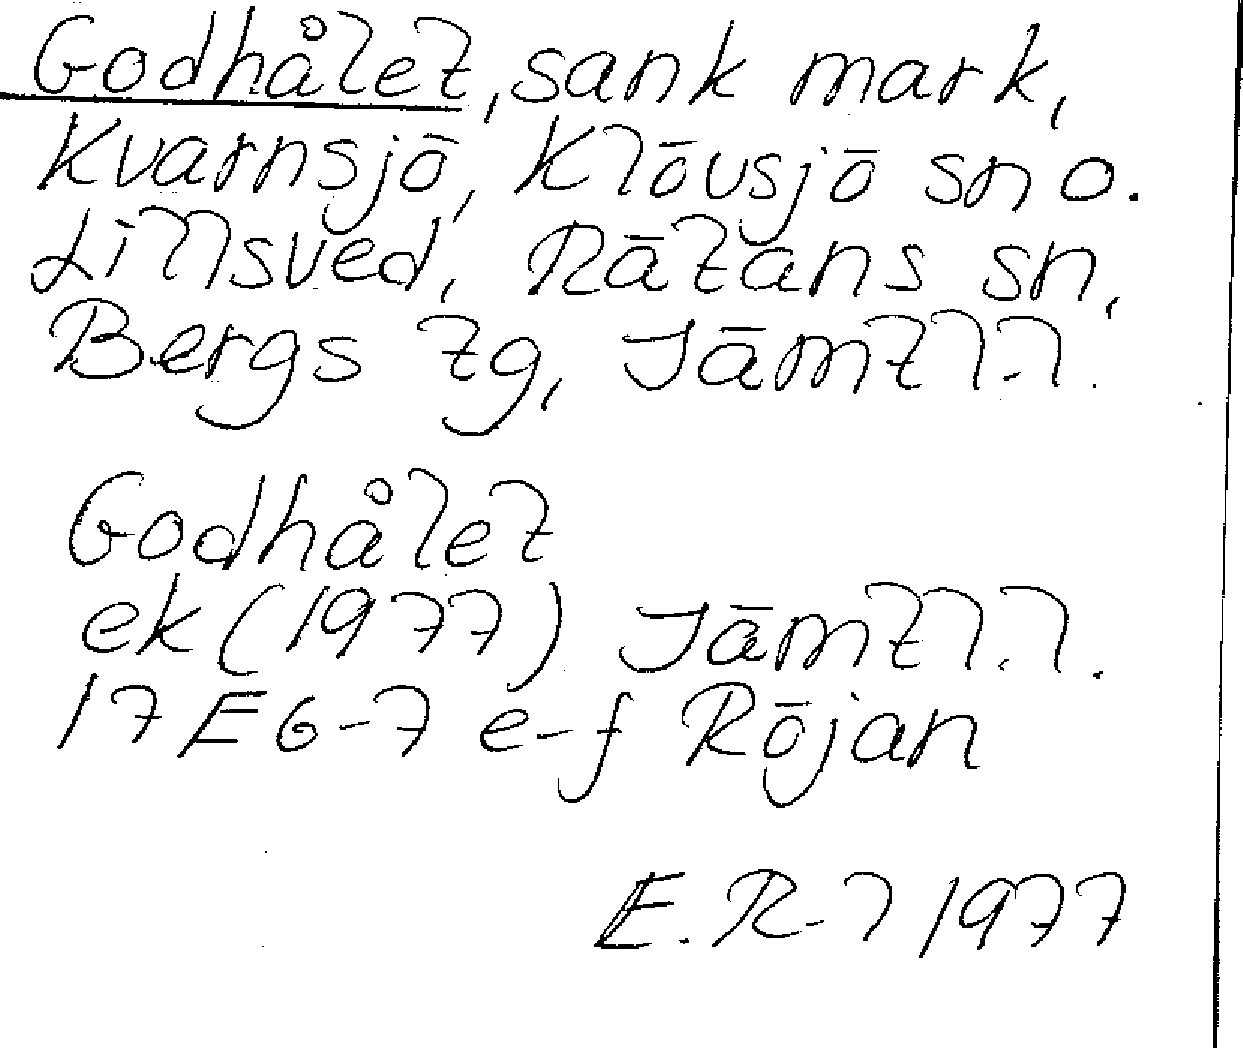 Godhålet, sank mark,
Kvarnsjö, Klövsjö sn o.
Lillsved, Rätans sn,
Bergs tg, Jämtl.l.
Godhålet
ek (1977) Jämtl.l.
17 E 6-7 e-f Röjan
E.R-l 1977